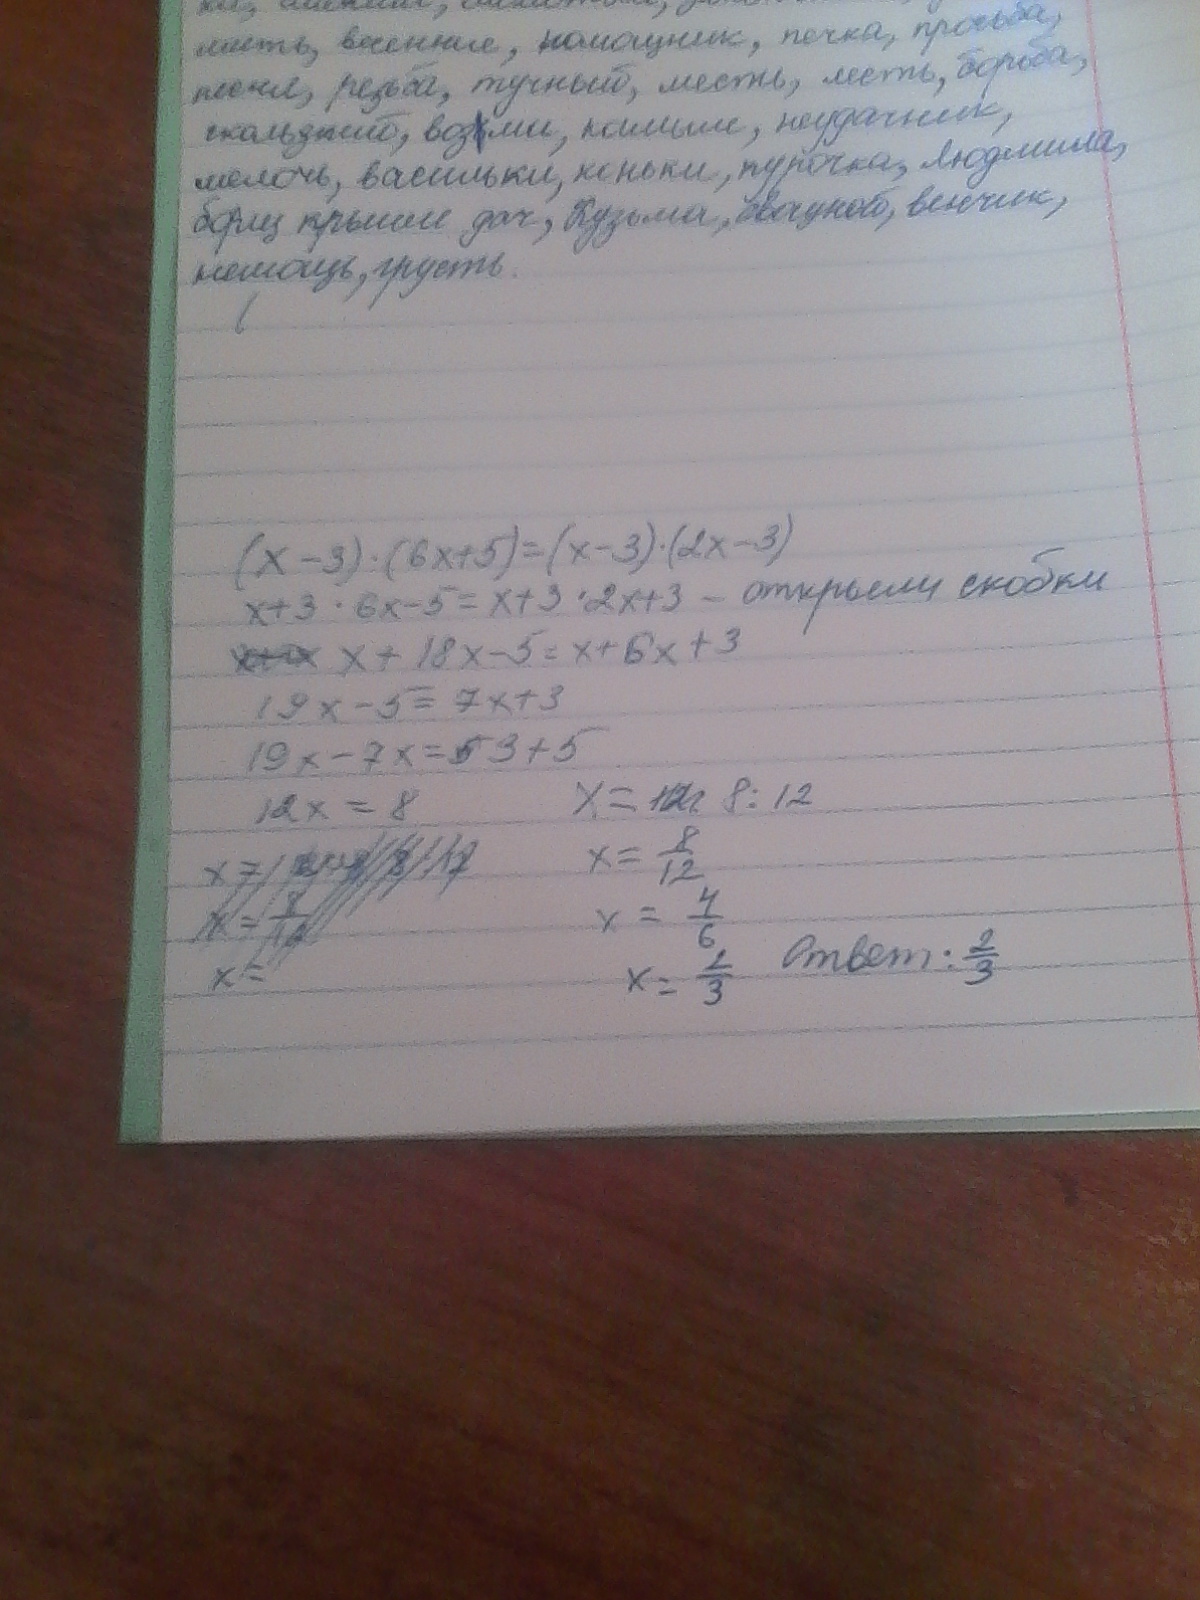 весенние, помощник, печка, просьба,
песня, резьба, тучный, месть, лесть, борьба,
скользкий, возьми, камыши, неудачник,
мелочь, васильки, коньки, курочка, Людмила,
борщ крыши дач, Кузьма, венчик,
немощь, грусть.
(
(x-3)·(6x+5)=(x-3)·(2x-3)
x+3·6x-5=x+3·2x+3 - открыли скобки
x+18x-5=x+6x+3
19x-5=7x+3
19x-7x=3+5
12x=8
x=
x=8:12
x=8/12
x=4/6
x=2/3
Ответ: 2/3